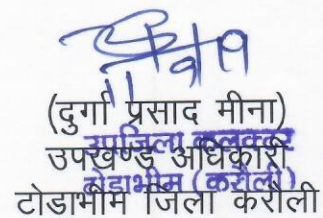 11/9/19
(दुर्गा प्रसाद मीना)
उपजिला कलक्टर
उपखण्ड अधिकारी
टोडाभीम (करौली)
टोडाभीम जिला करौली